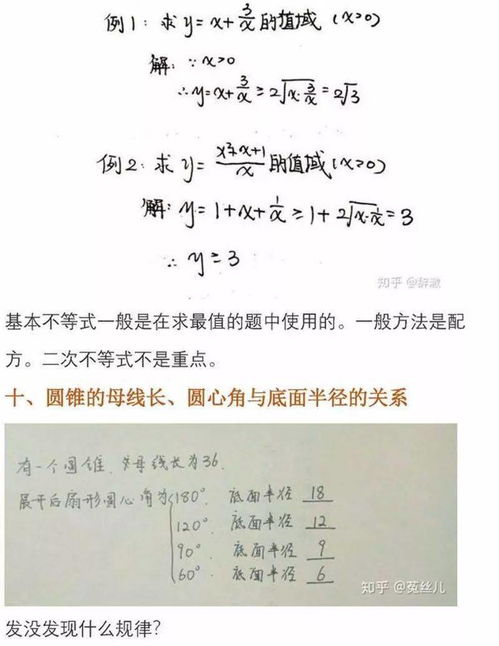 例1: 求 y=x+3/x 的值域 (x>0)
解: ∵x>0
∴y=x+3/x≥2√x·3/x=2√3
例2: 求 y=x²+x+1/x 的值域 (x>0)
解: y=1+x+1/x≥1+2√x·1/x=3
∴ y≥3
知乎 @辞漱
基本不等式一般是在求最值的题中使用的。一般方法是配
方。二次不等式不是重点。
十、圆锥的母线长、圆心角与底面半径的关系
有一个圆锥,母线长为36.
展开后扇形圆心角为{180°. 底面半径 18
120°. 底面半径 12
90°. 底面半径 9
60°. 底面半径 6
知乎 @菟丝儿
发没发现什么规律?